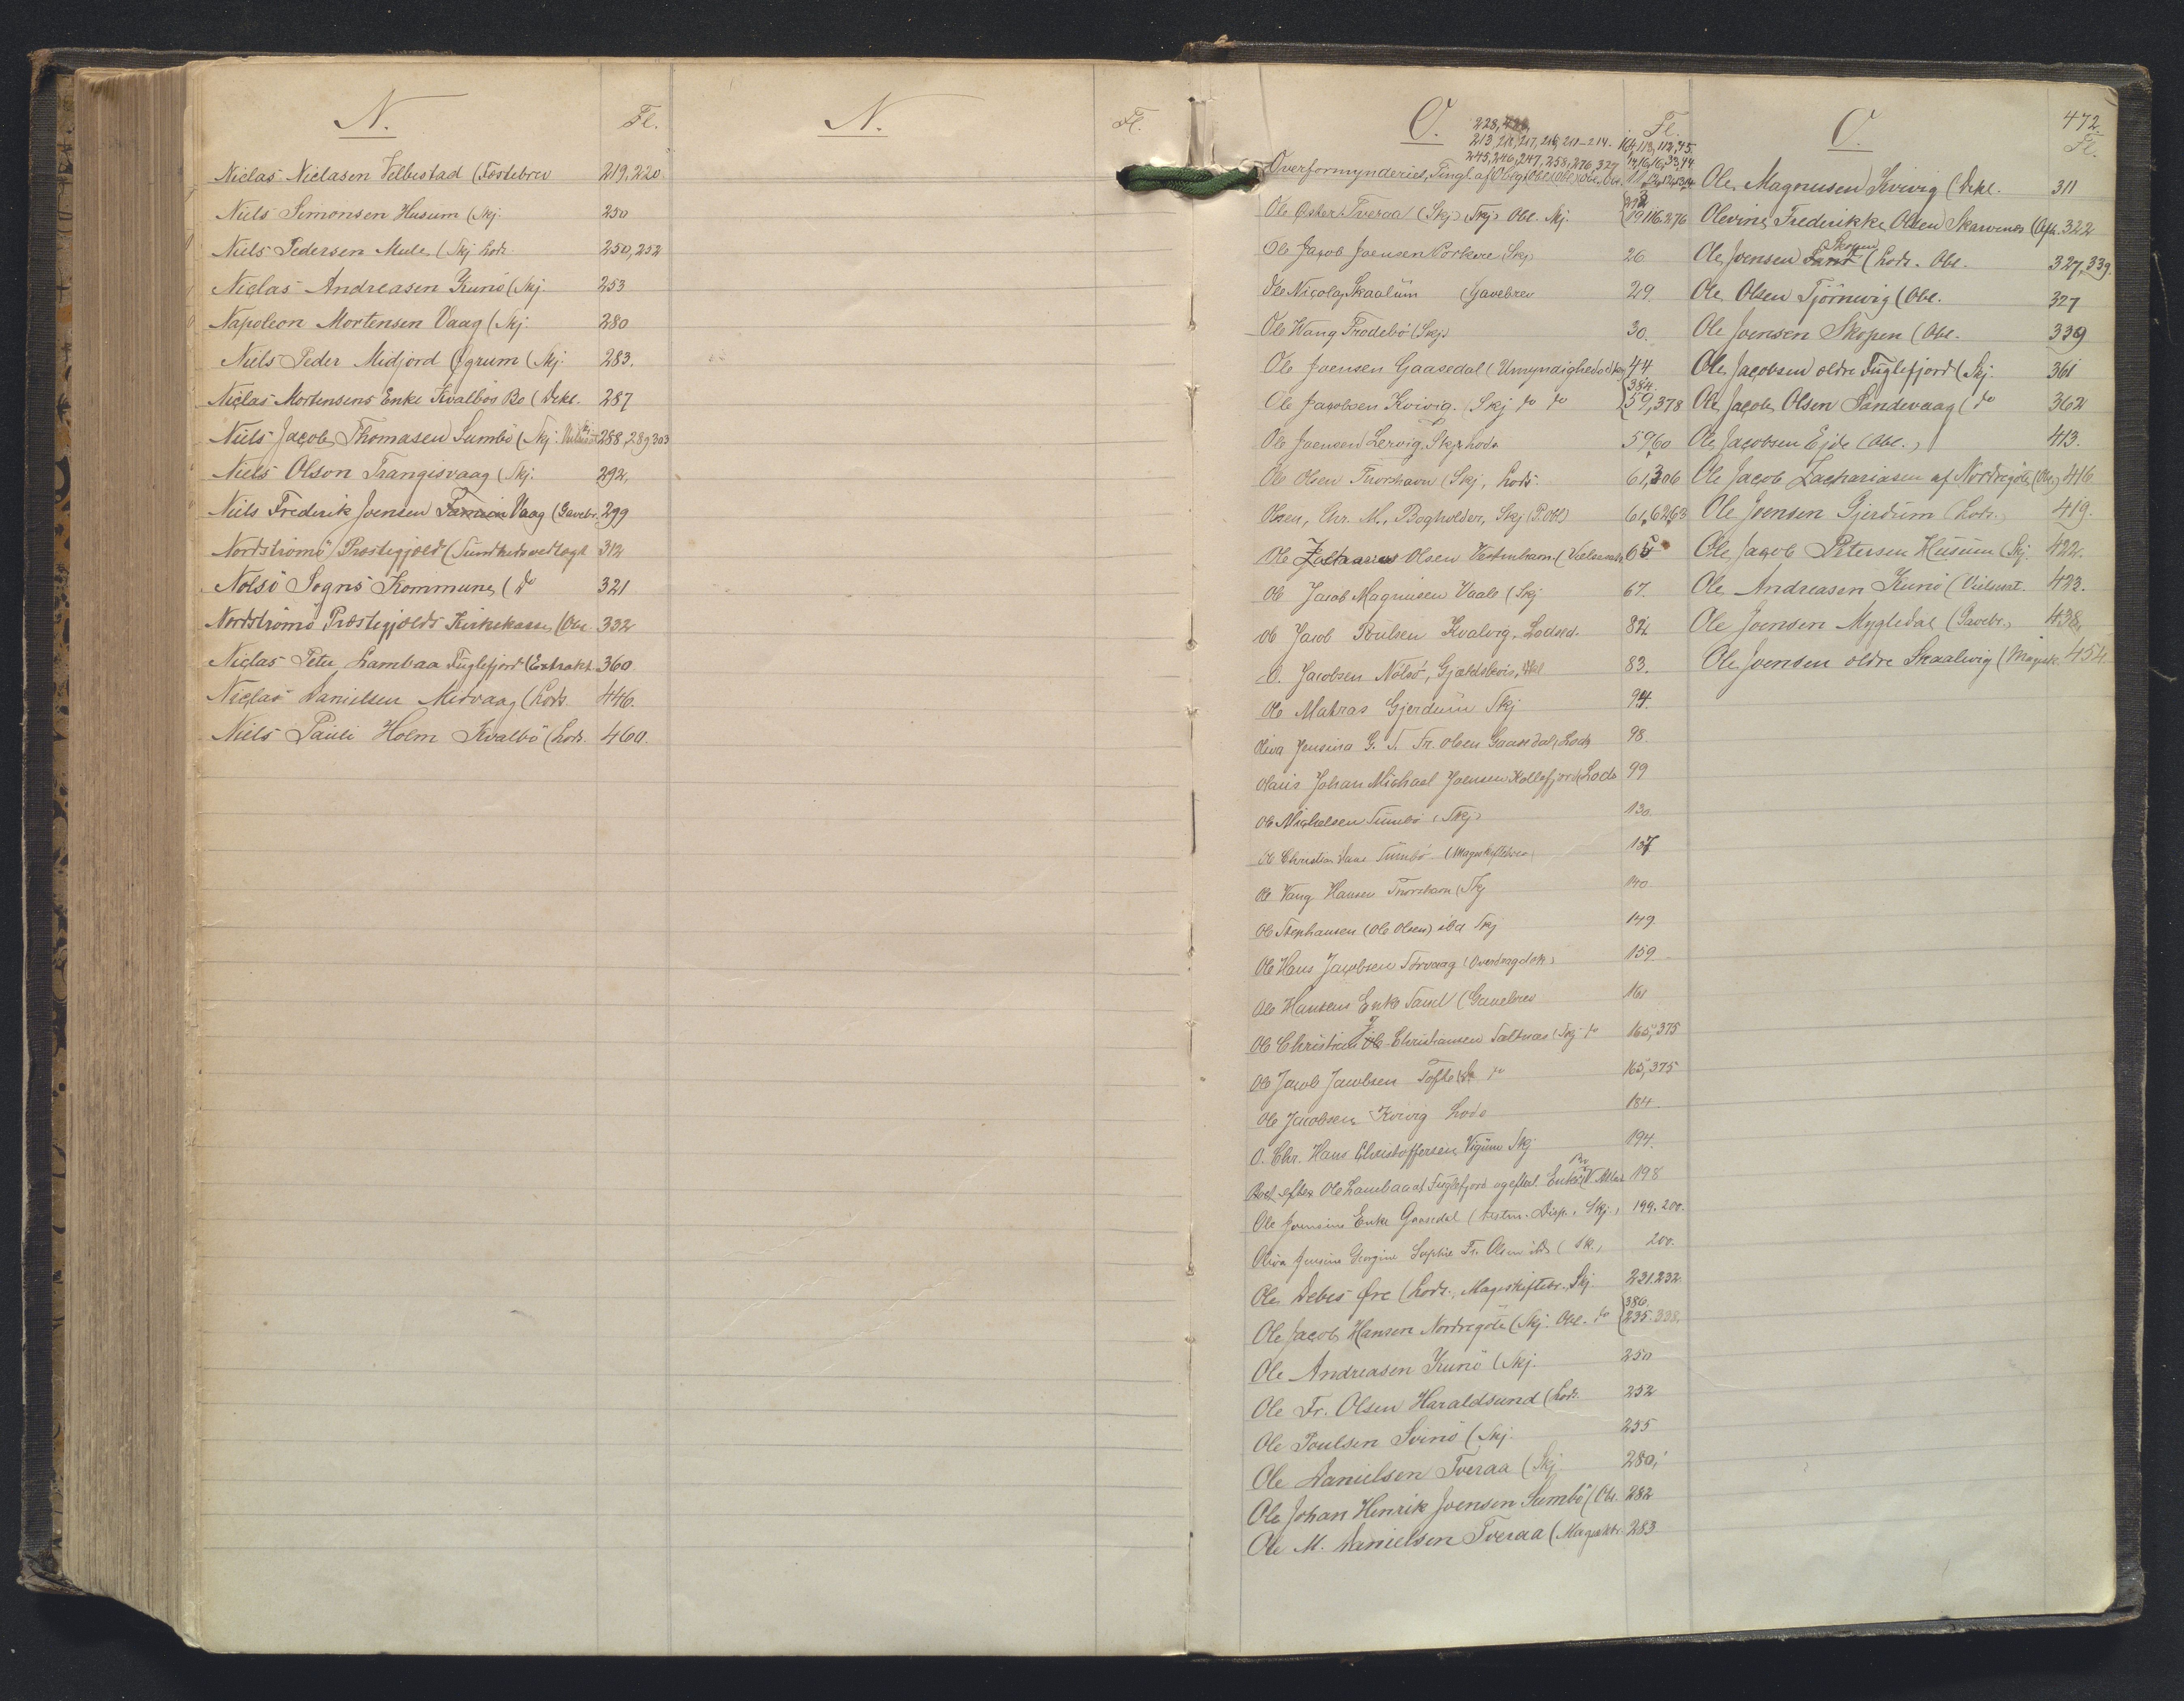 N. Fl.
Niclas Niclasen Velbestad (Festebrev 219,220.
Niels Simonsen Husum (Skj. 250
Niels Pedersen Mule (Skj Lods. 250,252
Niclas Andreasen Kunö (Skj. 253
Napoleon Mortensen Vaag (Skj. 280
Niels Peder Midjord Øgrum (Skj. 283.
Niclas Mortensens Enke Kvalbös Bo (Dekl. 287
Niels Jacob Thomasen Sumbö (Skj. 288,289,303
Niels Olson Trangisvaag (Skj. 292,
Niels Frederik Joensen Vaag (Gavebr. 299
Nordströmö Præstegjæld (Sundhedsvedtægt 312
Nolsö Sogns Kommune (do 321
Nordströmö Præstegjælds Kirkekasse (Obl. 332
Niclas Peter Lambaa Fuglefjord (Extrakt. 360
Niclas Danielsen Midvaag (Lods. 446.
Niels Pauli Holm Kvalbö (Lods. 460.
N. Fl.
O. Fl.
228,
213, 214, 217, 218, 211-214.
245,246,247,258,276,327
Overformynderiet, Tingl. af Oblg.
Ole Øster Tveraa (Skj) Skj. Obl. Skj. 19,116,276
Ole Jacob Joensen Porkere (Skj) 26
Ole Nicolaj Skaalum (Gavebrev 29.
Ole Wang Frodebö (Skj) 30.
Ole Joensen Gaasedal (Umyndighedsdkr 44
Ole Jacobsen Kvivig. (Skj do do {384. 59,378
Ole Joensen Lervig. Skj. Lods 59,60
Ole Olsen Thorshavn (Skj, Lods. 61,306
Olsen, Chr. M., Bogholder, Skj (P. Obl) 61,62,63
Ole Zacharias Olsen Vestmhavn (Vielsesatt 65
Ole Jacob Magnusen Vaale (Skj 67.
Ole Jacob Poulsen Kvalvig, Lodssd. 82
O. Jacobsen Nólsó, Gjældsbevis, 83.
Ole Matras Gjerdum Skj 94.
Oliva Jensina G. S. Fr. Olsen Gaasedal, Lods 98.
Olaus Johan Michael Joensen Kollefjord, Lods 99
Ole Michelsen Sumbö (Skj) 130.
Ole Christian Sumbó (Mageskiftebrev) 137
Ole Vang Hansen Thorshavn (Skj 140
Ole Stephansen (Ole Olsen) ibd Skj 149.
Ole Hans Jacobsen Sörvaag (Overdragelsk) 159
Ole Hansens Enke Sand (Gavebrev 161
Ole Christian J. Christiansen Saltnæs (Skj do 165,375
Ole Jacob Jacobsen Tofte (Sk do 165,375
Ole Jacobsen Kvivig Lods 184.
O. Chr. Hans Christoffersen Vigum Skj 194.
Boet efter Ole Lambaa af Fuglefjord og efterl. Enke 198
Ole Joensens Enke Gaasedal (Testm. Disp., Skj.) 199. 200.
Oliva Jensine Georgine Sophie Fr. Olsen ibd (Sk.) 200.
Ole Debes Øre (Lods., Mageskiftebr. Skj. 231.232.
Ole Jacob Hansen Nordregöte (Skj. Obl. do {386. 235.338.
Ole Andreasen Kunö (Skj. 250
Ole Fr. Olsen Haraldsund (Lods. 252
Ole Poulsen Svinö (Skj. 255
Ole Danielsen Tveraa (Skj. 280,
Ole Johan Henrik Joensen Sumbö (Obl. 282
Ole M. Danielsen Tveraa (Mageskbr. 283
O. 472. Fl.
Ole Magnusen Kvivig (Dekl. 311
Olevine Frederikke Olsen Skarvenes (Afk. 322
Ole Joensen Sand Skopen (Lods. Obl. 327,339.
Ole Olsen Tjörnevig (Obl. 327
Ole Joensen Skopen (Obl. 339
Ole Jacobsen ældre Fuglefjord (Skj. 361
Ole Jacob Olsen Sandevaag (do 362
Ole Jacobsen Ejde (Obl.) 413.
Ole Jacob Zachariasen af Nordregöte (Obl) 416
Ole Joensen Gjerdum (Lods.) 419.
Ole Jacob Petersen Husum (Skj. 422.
Ole Andreasen Kunö (Vielsesat. 423.
Ole Joensen Mygledal (Gavebr.) 438,
Ole Joensen ældre Skaalevig (Magesk. 454